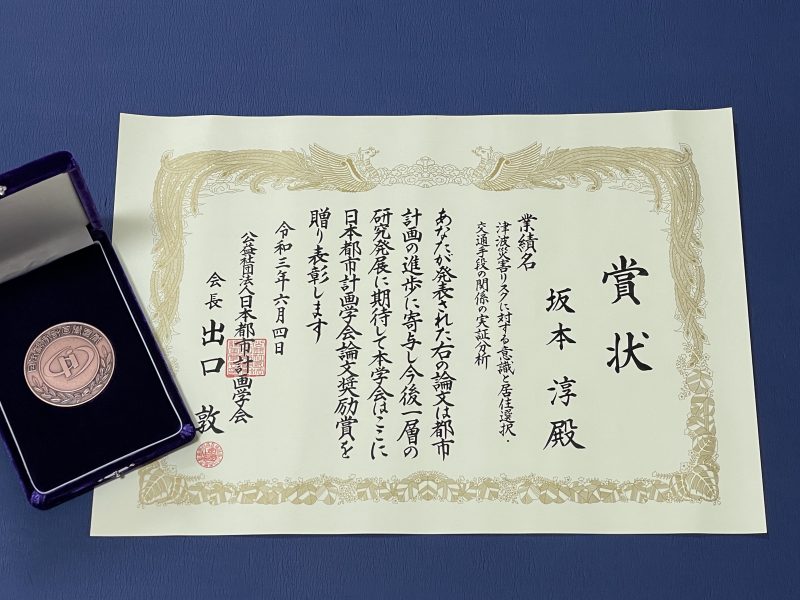 賞状
坂本淳殿
業績名
津波災害リスクに対する意識と居住選択・
交通手段の関係の実証分析
あなたが発表された右の論文は都市
計画の進歩に寄与し今後一層の
研究発展に期待して本学会はここに
日本都市計画学会論文奨励賞を
贈り表彰します
令和三年六月四日
公益社団法人日本都市計画学会
会長 出口敦